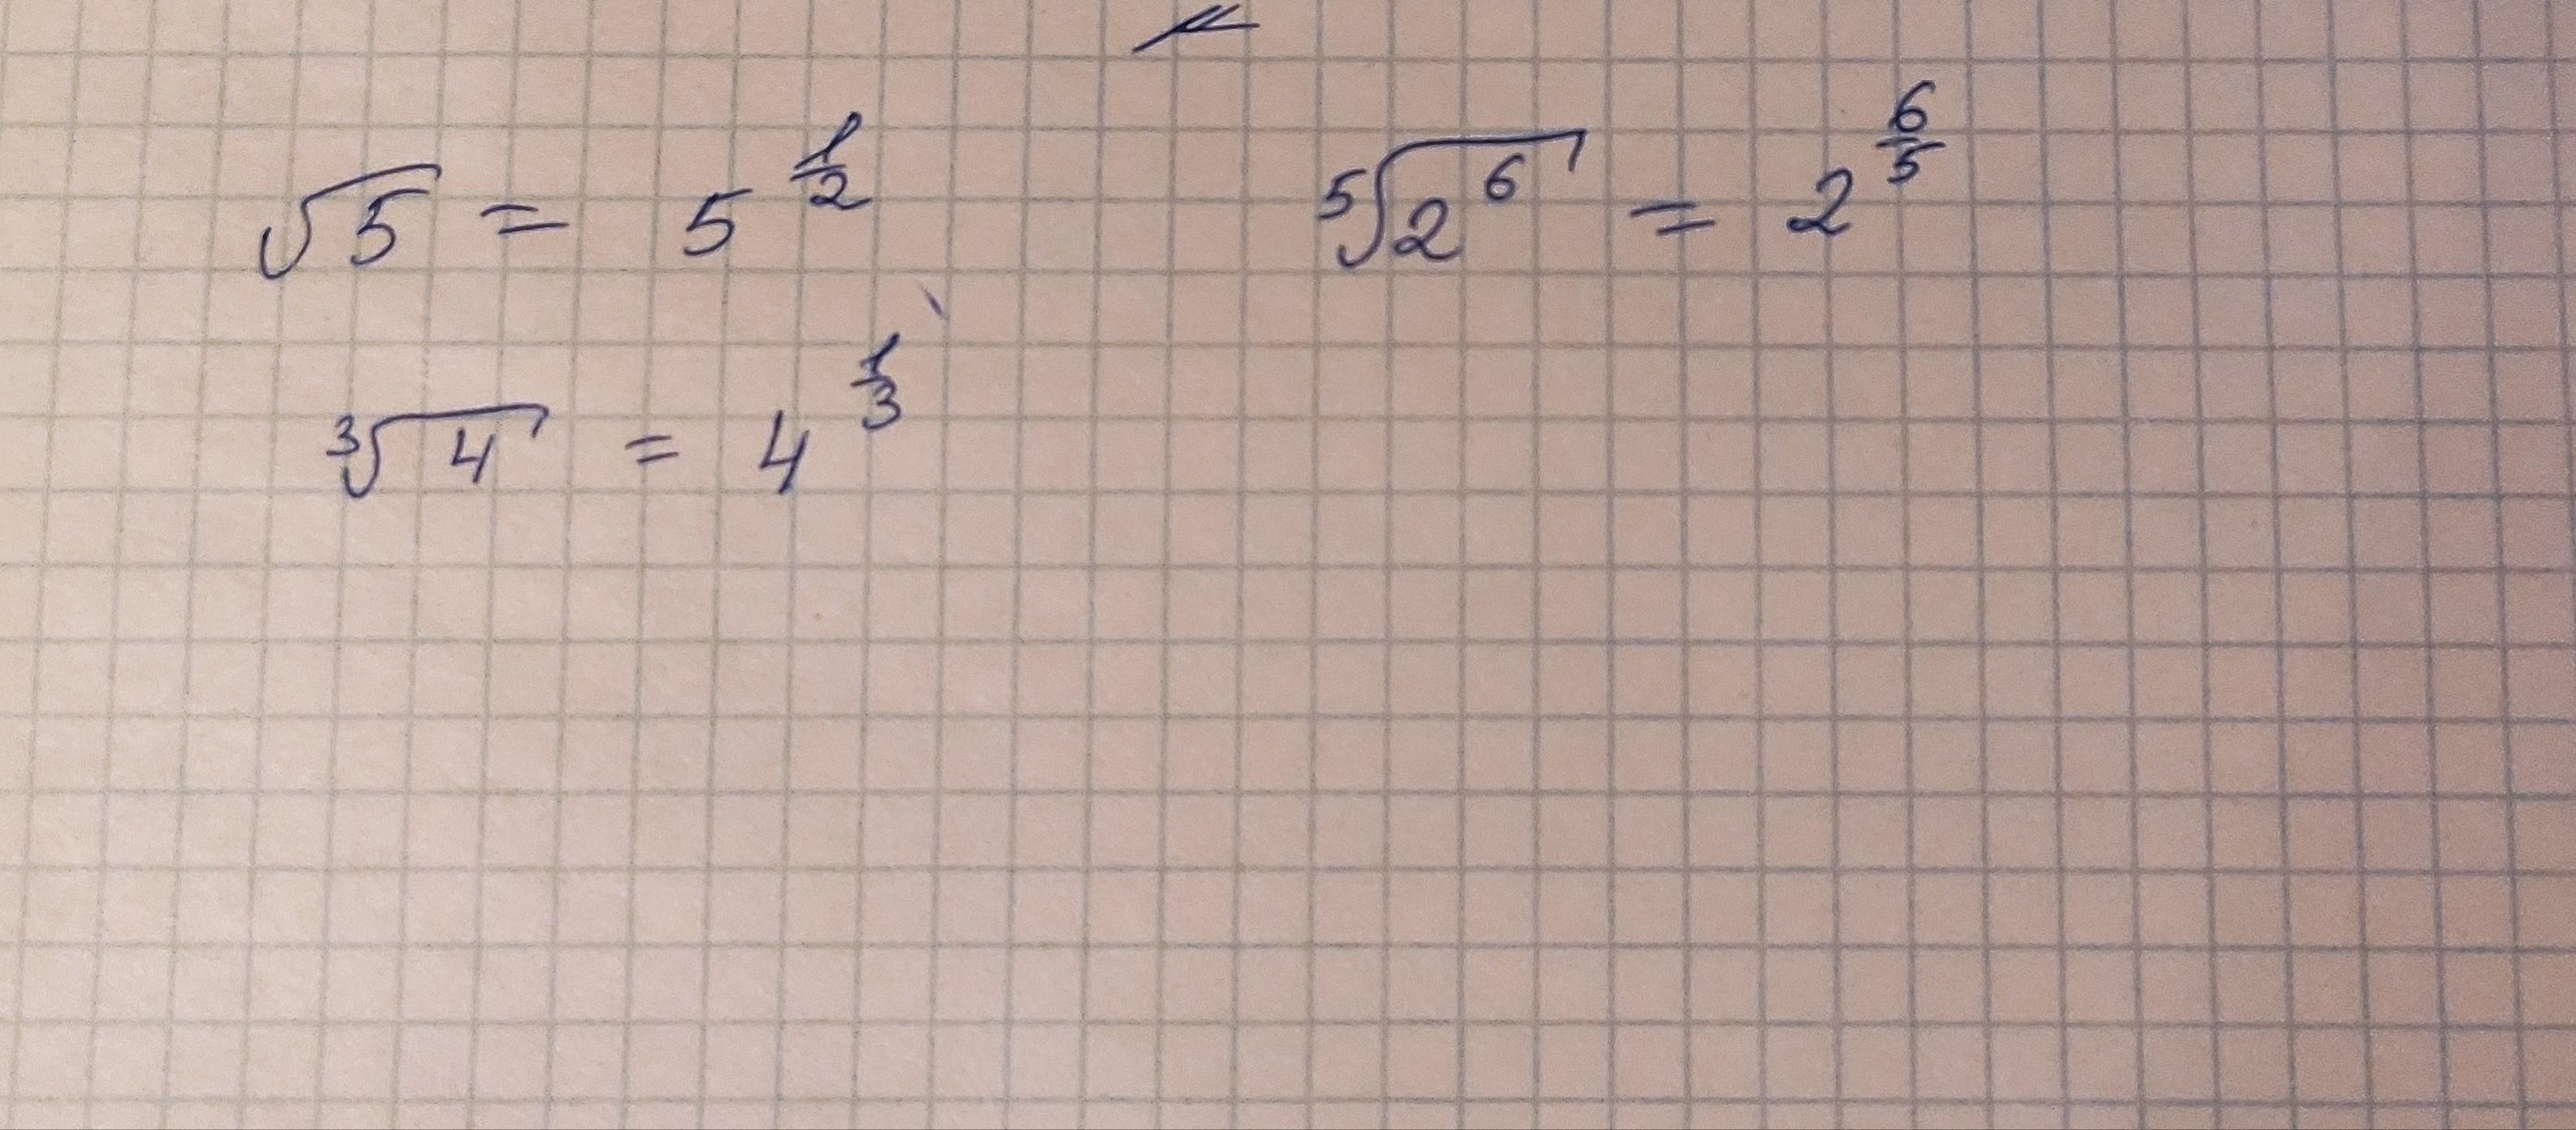 √5 = 5^(1/2)
⁵√(2^6) = 2^(6/5)
³√4 = 4^(1/3)